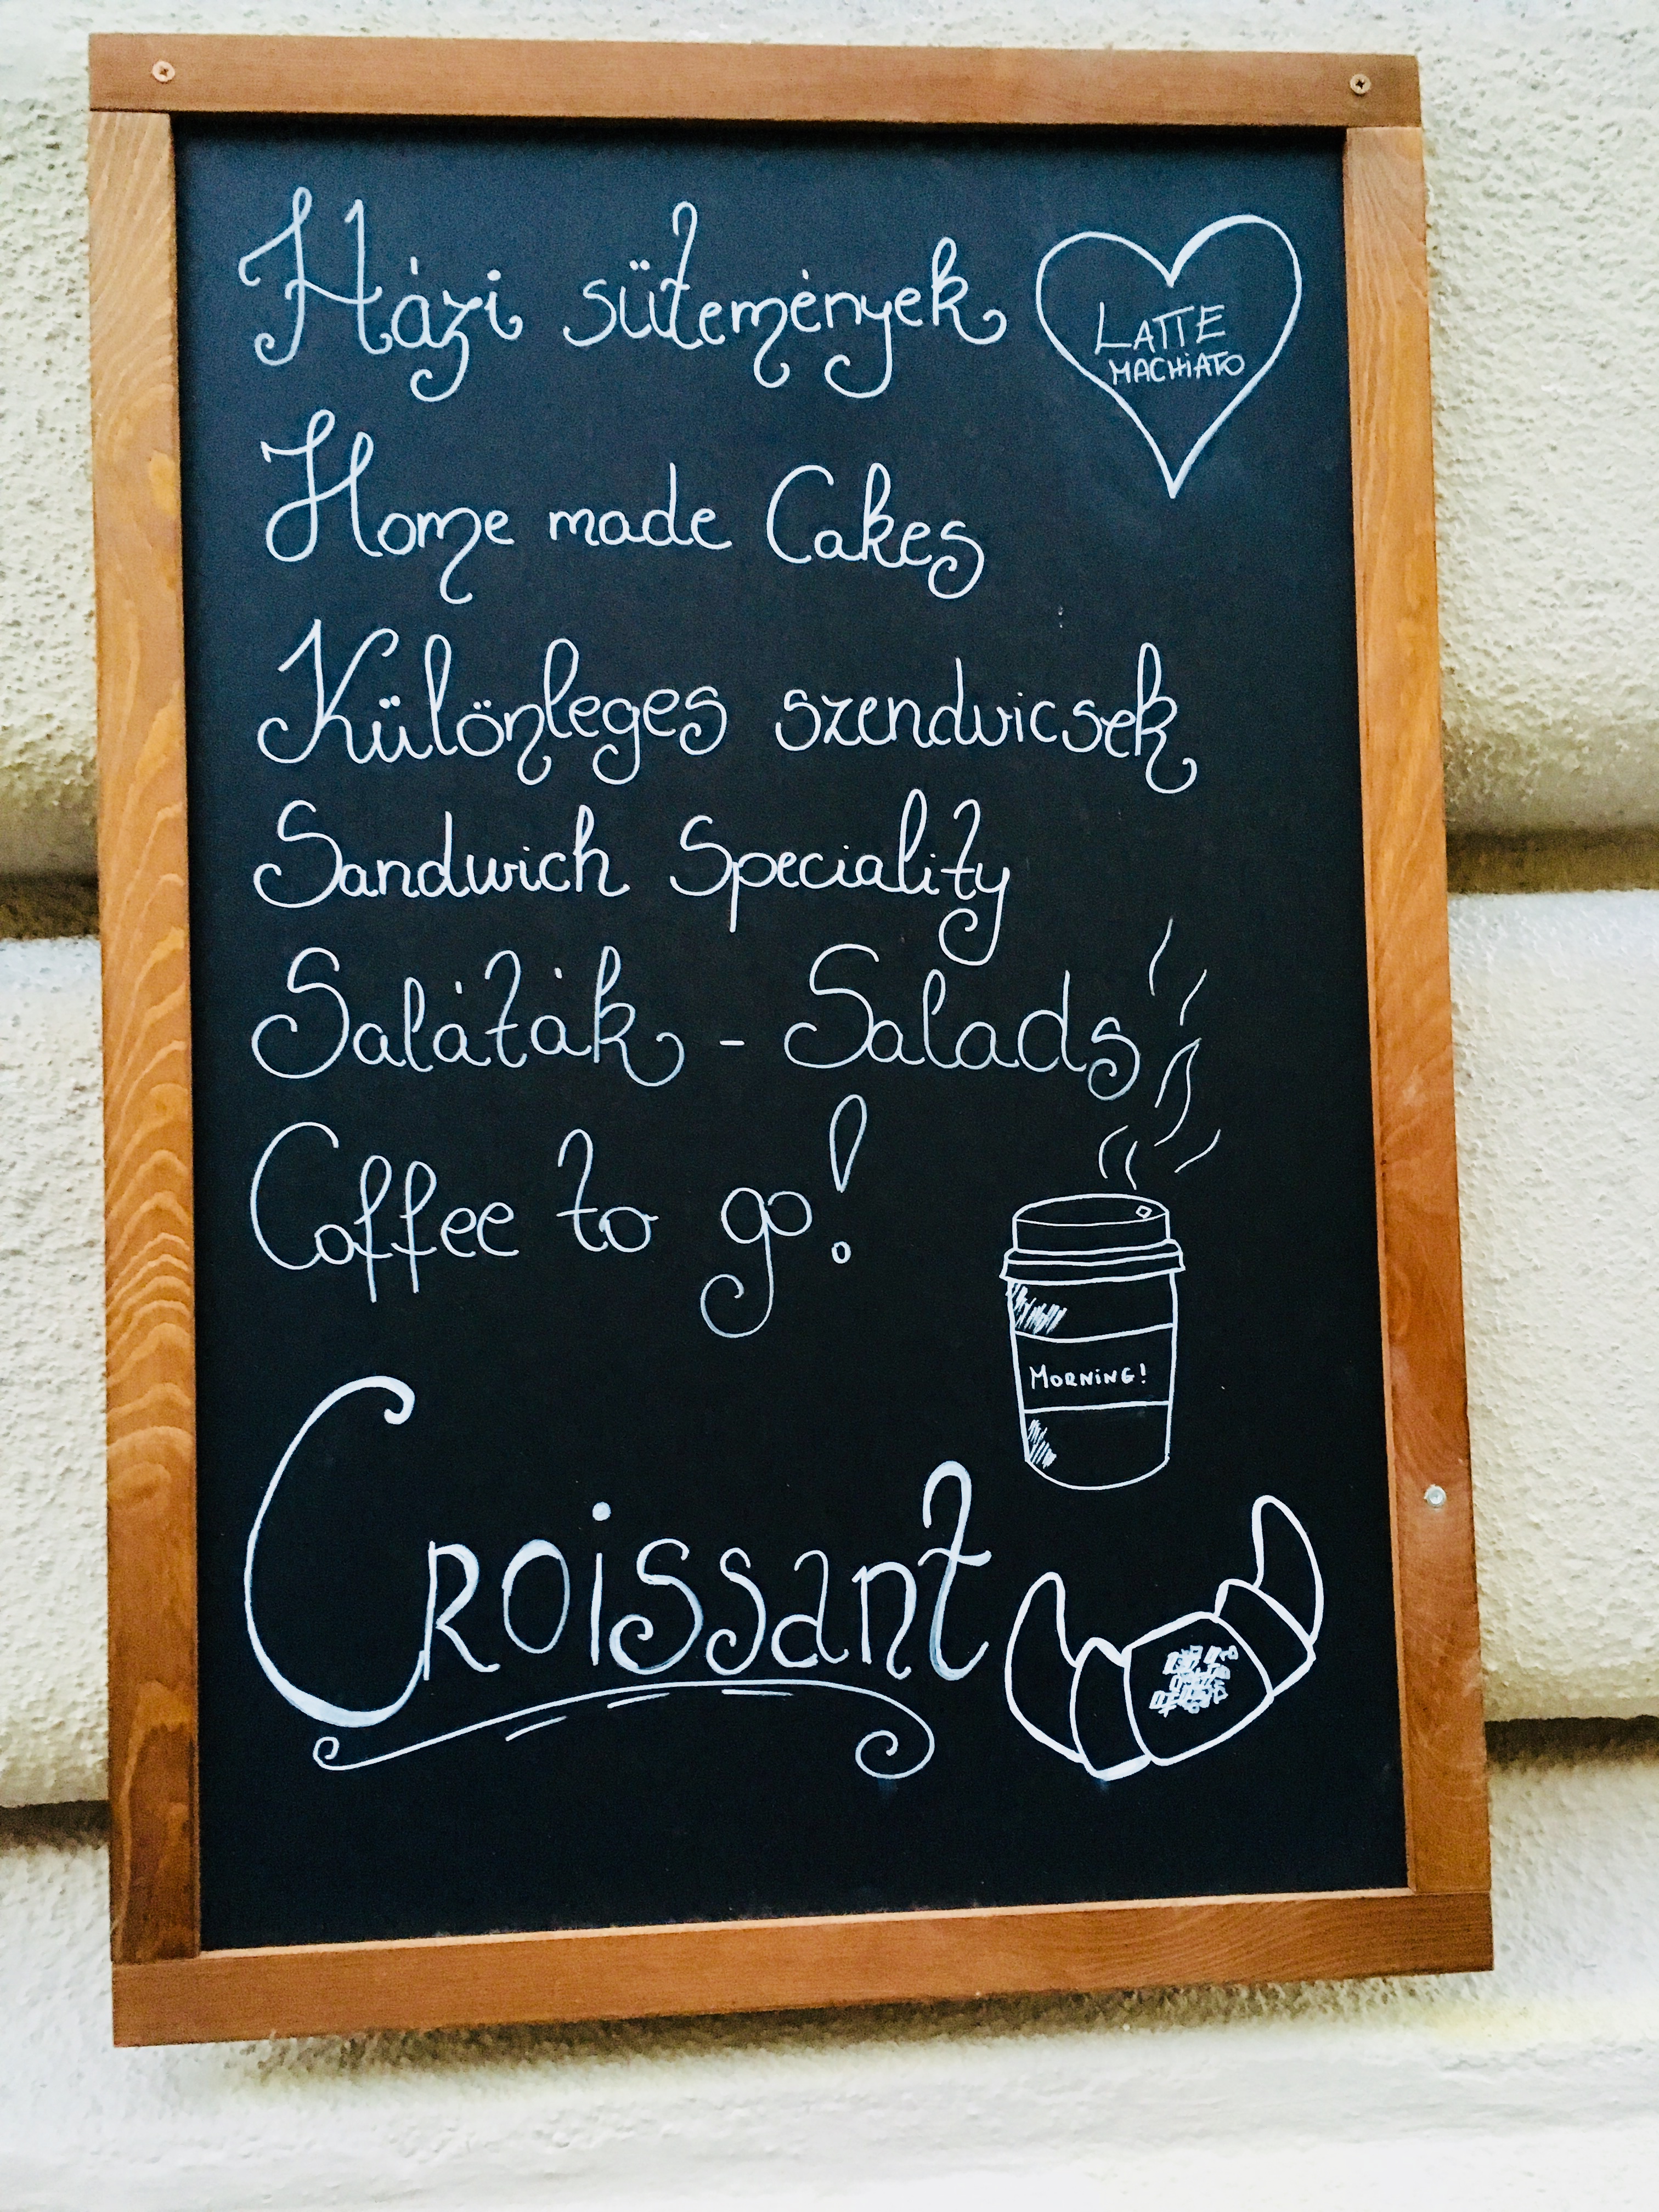 Házi sütemények
LATTE
MACHiATO
Home made Cakes
Különleges szendvicsek
Sandwich Speciality
Saláták - Salads
Coffee to go!
MORNiNG!
CROissant